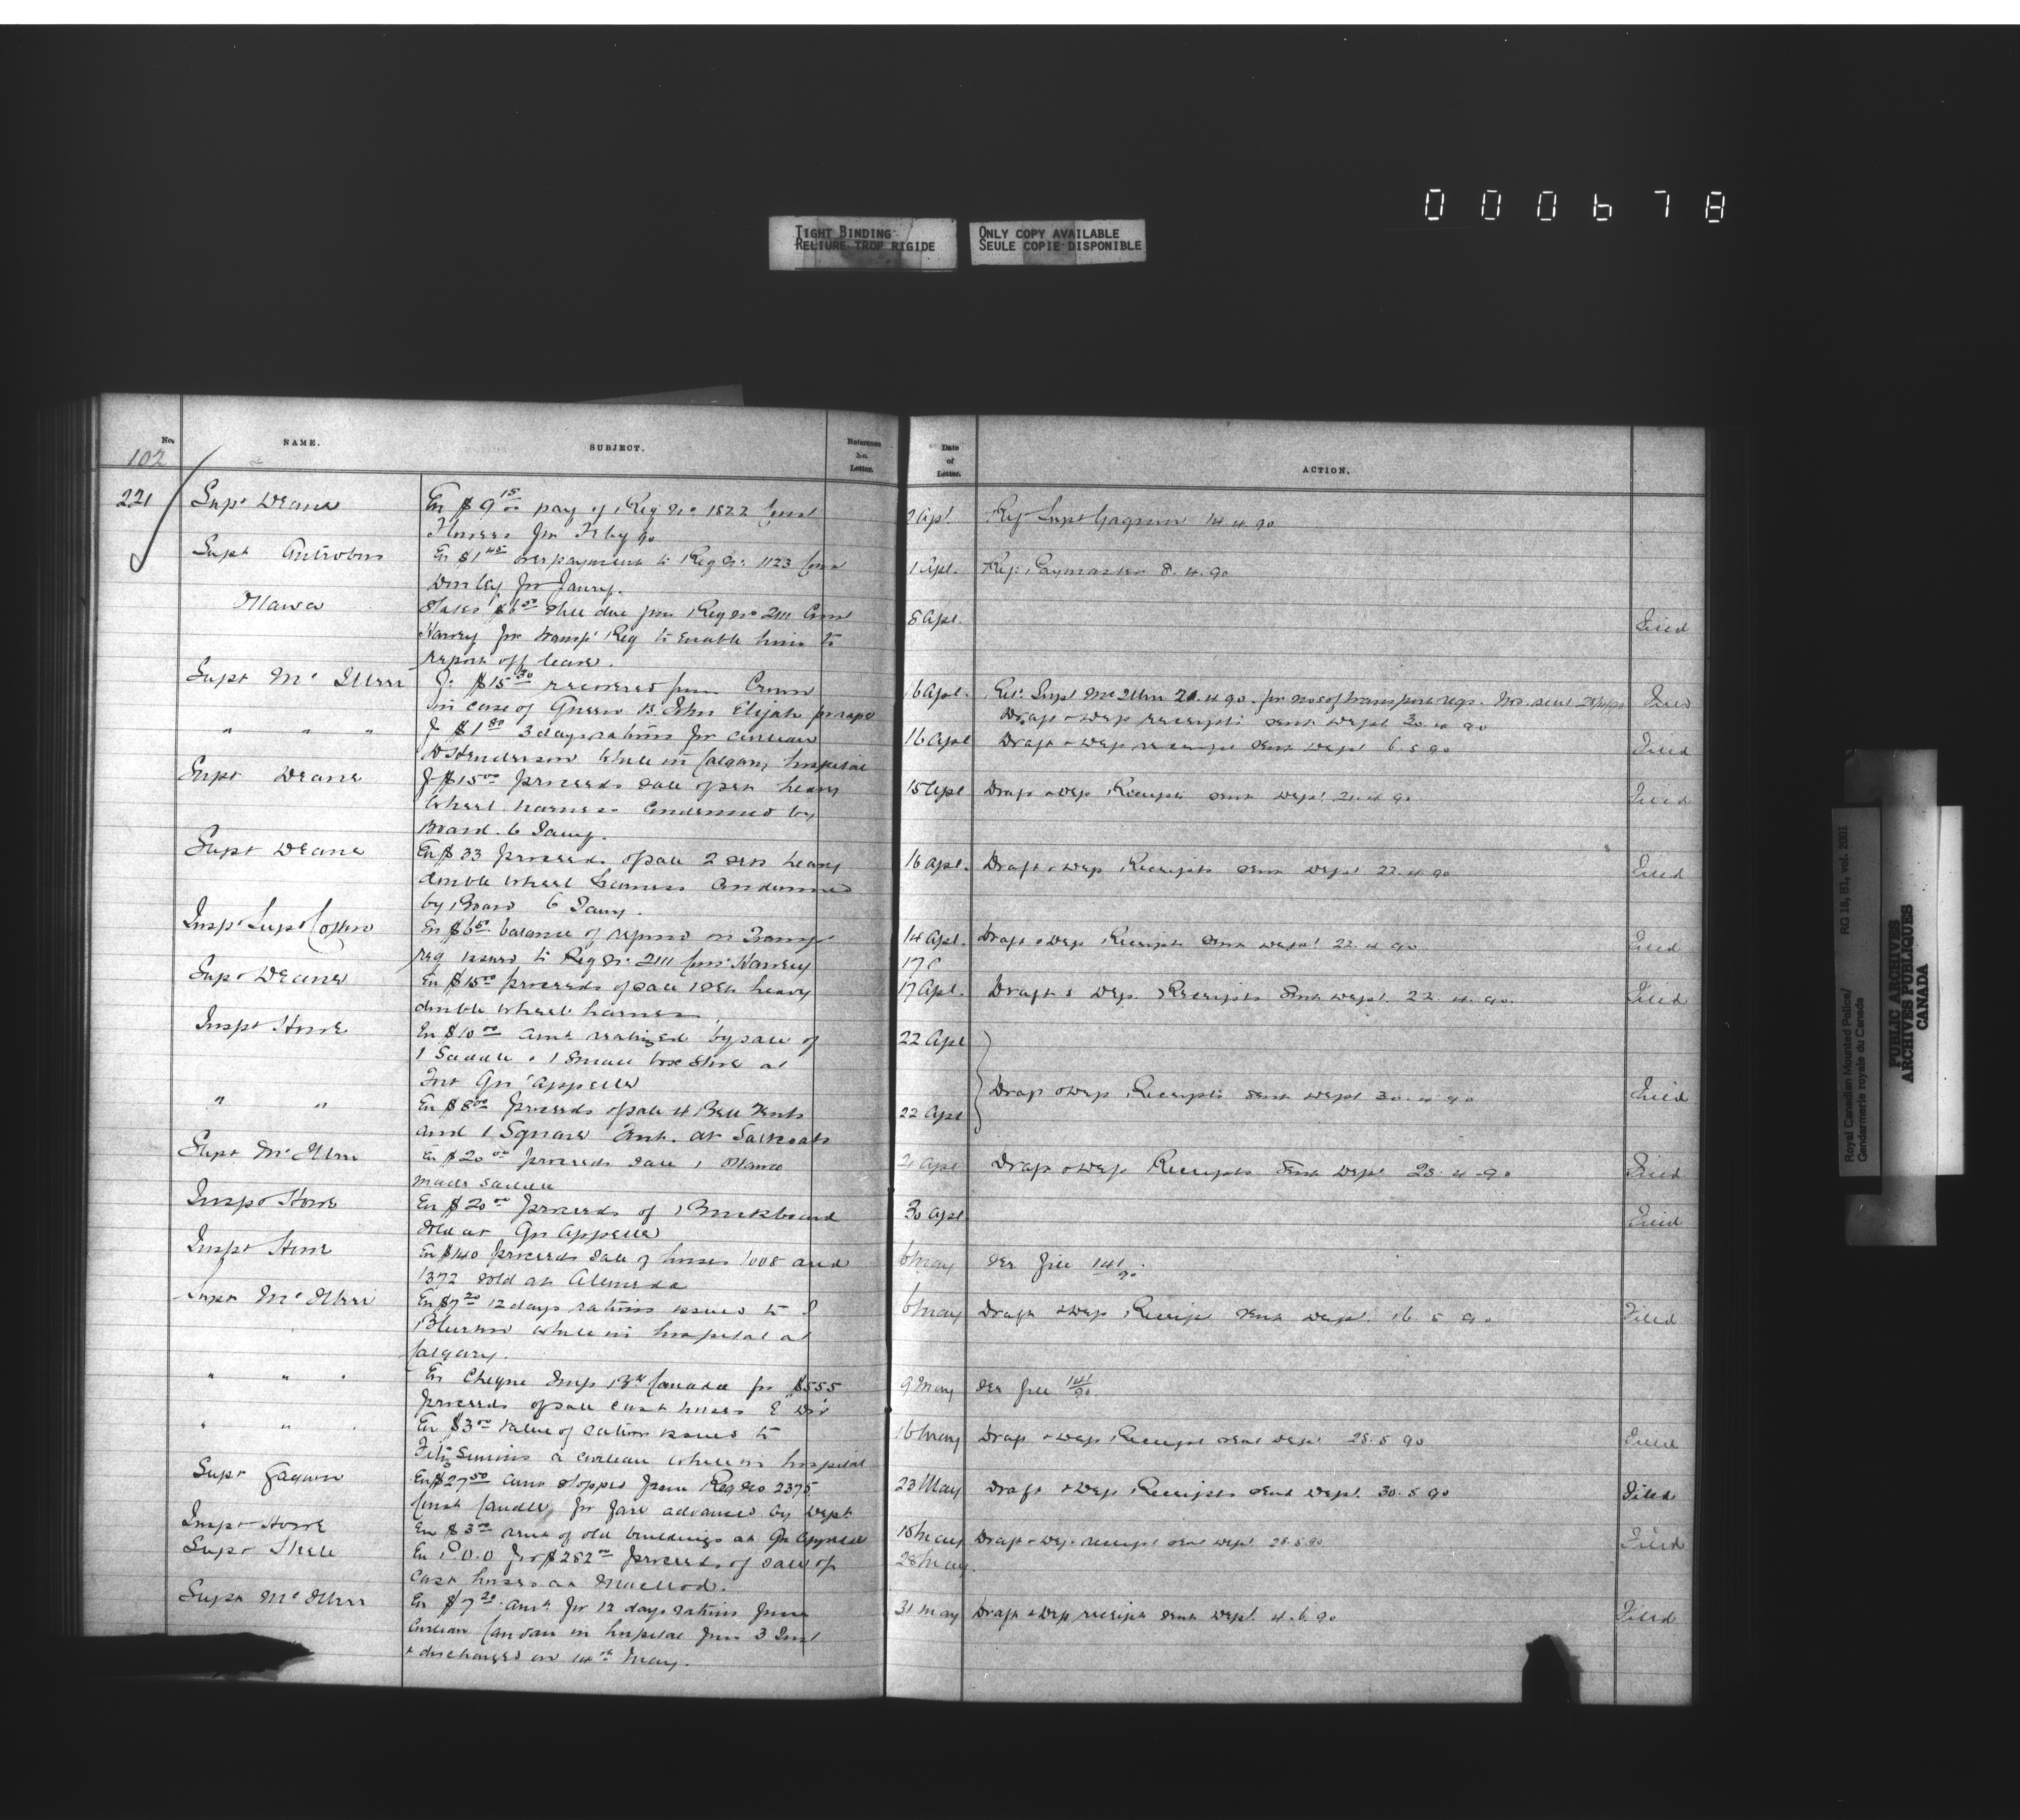 000678
TIGHT BINDING
RELIURE TROP RIGIDE
ONLY COPY AVAILABLE
SEULE COPIE DISPONIBLE
No. NAME. SUBJECT. Reference No. Letter. Date of Letter. ACTION.
102
221 Supt Deane En $9 15/00 pay of Reg No 1822 Const 2 Apl. Ref Supt Gagnon 14.4.90
Flowers for Feby 90
Supt Antrobus En $1 45 overpayment to Reg No 1123 Const 1 Apl. Ref. Paymaster 8.4.90
for Jany.
Ottawa States $6 50 still due from Reg No 2111 Const 8 Apl. Filed
Harvey for transpt Req to enable him to
report off leave.
Supt McIllree $15 30 recovered from Crown 16 Apl. Ret. Supt McIllree 21.4.90 for nos of transport reqs.
in case of Queen vs John Elijah Draft & Dep receipts sent Dept 30.4.90 Filed
" " " $1 80 3 days rations for civilian 16 Apl Draft & Dep receipt sent Dept 6.5.90 Filed
Henderson while in Calgary hospital
Supt Deane $15 00 proceeds sale of set heavy 15 Apl Draft & Dep Receipts sent Dept. 21.4.90 Filed
wheel harness condemned by
Board 6 Jany.
Supt Deane En $33 proceeds of sale 2 sets heavy 16 Apl. Draft & Dep Receipts sent Dept 22.4.90 Filed
double wheel harness condemned
by Board 6 Jany.
Inspt Supt Cotton En $6 50 balance of refund on Transpt 14 Apl. Draft & Dep Receipts sent Dept 22.4.90 Filed
req issued to Reg No 2111 Const Harvey 17
Supt Deane En $15 00 proceeds of sale 1 set heavy 17 Apl. Draft & Dep. Receipts sent Dept. 22.4.90. Filed
double wheel harness
Inspt Howe En $10 00 amt realized by sale of 22 Apl
1 Saddle & 1 small box stove at
Fort Qu'Appelle Draft & Dep Receipts sent Dept 30.4.90 Filed
" " En $8 00 proceeds of sale 4 Bell Tents 22 Apl
and 1 Square Tent. at Saltcoats
Supt McIllree En $20 00 proceeds sale 1 Ottawa 21 Apl Draft & Dep Receipts sent Dept 28.4.90 Filed
made saddle
Inspt Howe En $20 00 proceeds of 1 Buckboard 30 Apl. Filed
sold at Qu'Appelle
Inspt Howe En $140 proceeds sale of horses 1008 and 6 May See file 141/90.
1372 sold at Alameda
Supt McIllree En $7 20 12 days rations issued to 6 May Draft & Dep Receipt sent Dept. 16.5.90 Filed
while in hospital at
Calgary.
" " " En Cheque Imp Bk Canada for $555 9 May See file 141/90.
proceeds of sale cast horses E Div
" " " En $3 00 value of rations issued to 16 May Draft & Dep Receipt sent Dept 28.5.90 Filed
Fitz Simons a civilian while in hospital
Supt Gagnon En $27 50 amt stopped from Reg No 2375 23 May Draft & Dep Receipts sent Dept. 30.5.90 Filed
Const for fare advanced by Dept
Inspt Howe En $3 00 rent of old buildings at Qu'Appelle 18 May Draft & Dep receipt sent Dept 28.5.90 Filed
Supt Steele En P.O.O for $282 00 proceeds of sale of 28 May.
cast horses at Macleod.
Supt McIllree En $7 20 amt. for 12 days rations from 31 May Draft & Dep receipt sent Dept. 4.6.90 Filed
civilian in hospital from 3 Inst
& discharged on 14th May.
Royal Canadian Mounted Police/ RG 18, B1, vol. 2001
Gendarmerie royale du Canada
PUBLIC ARCHIVES
ARCHIVES PUBLIQUES
CANADA